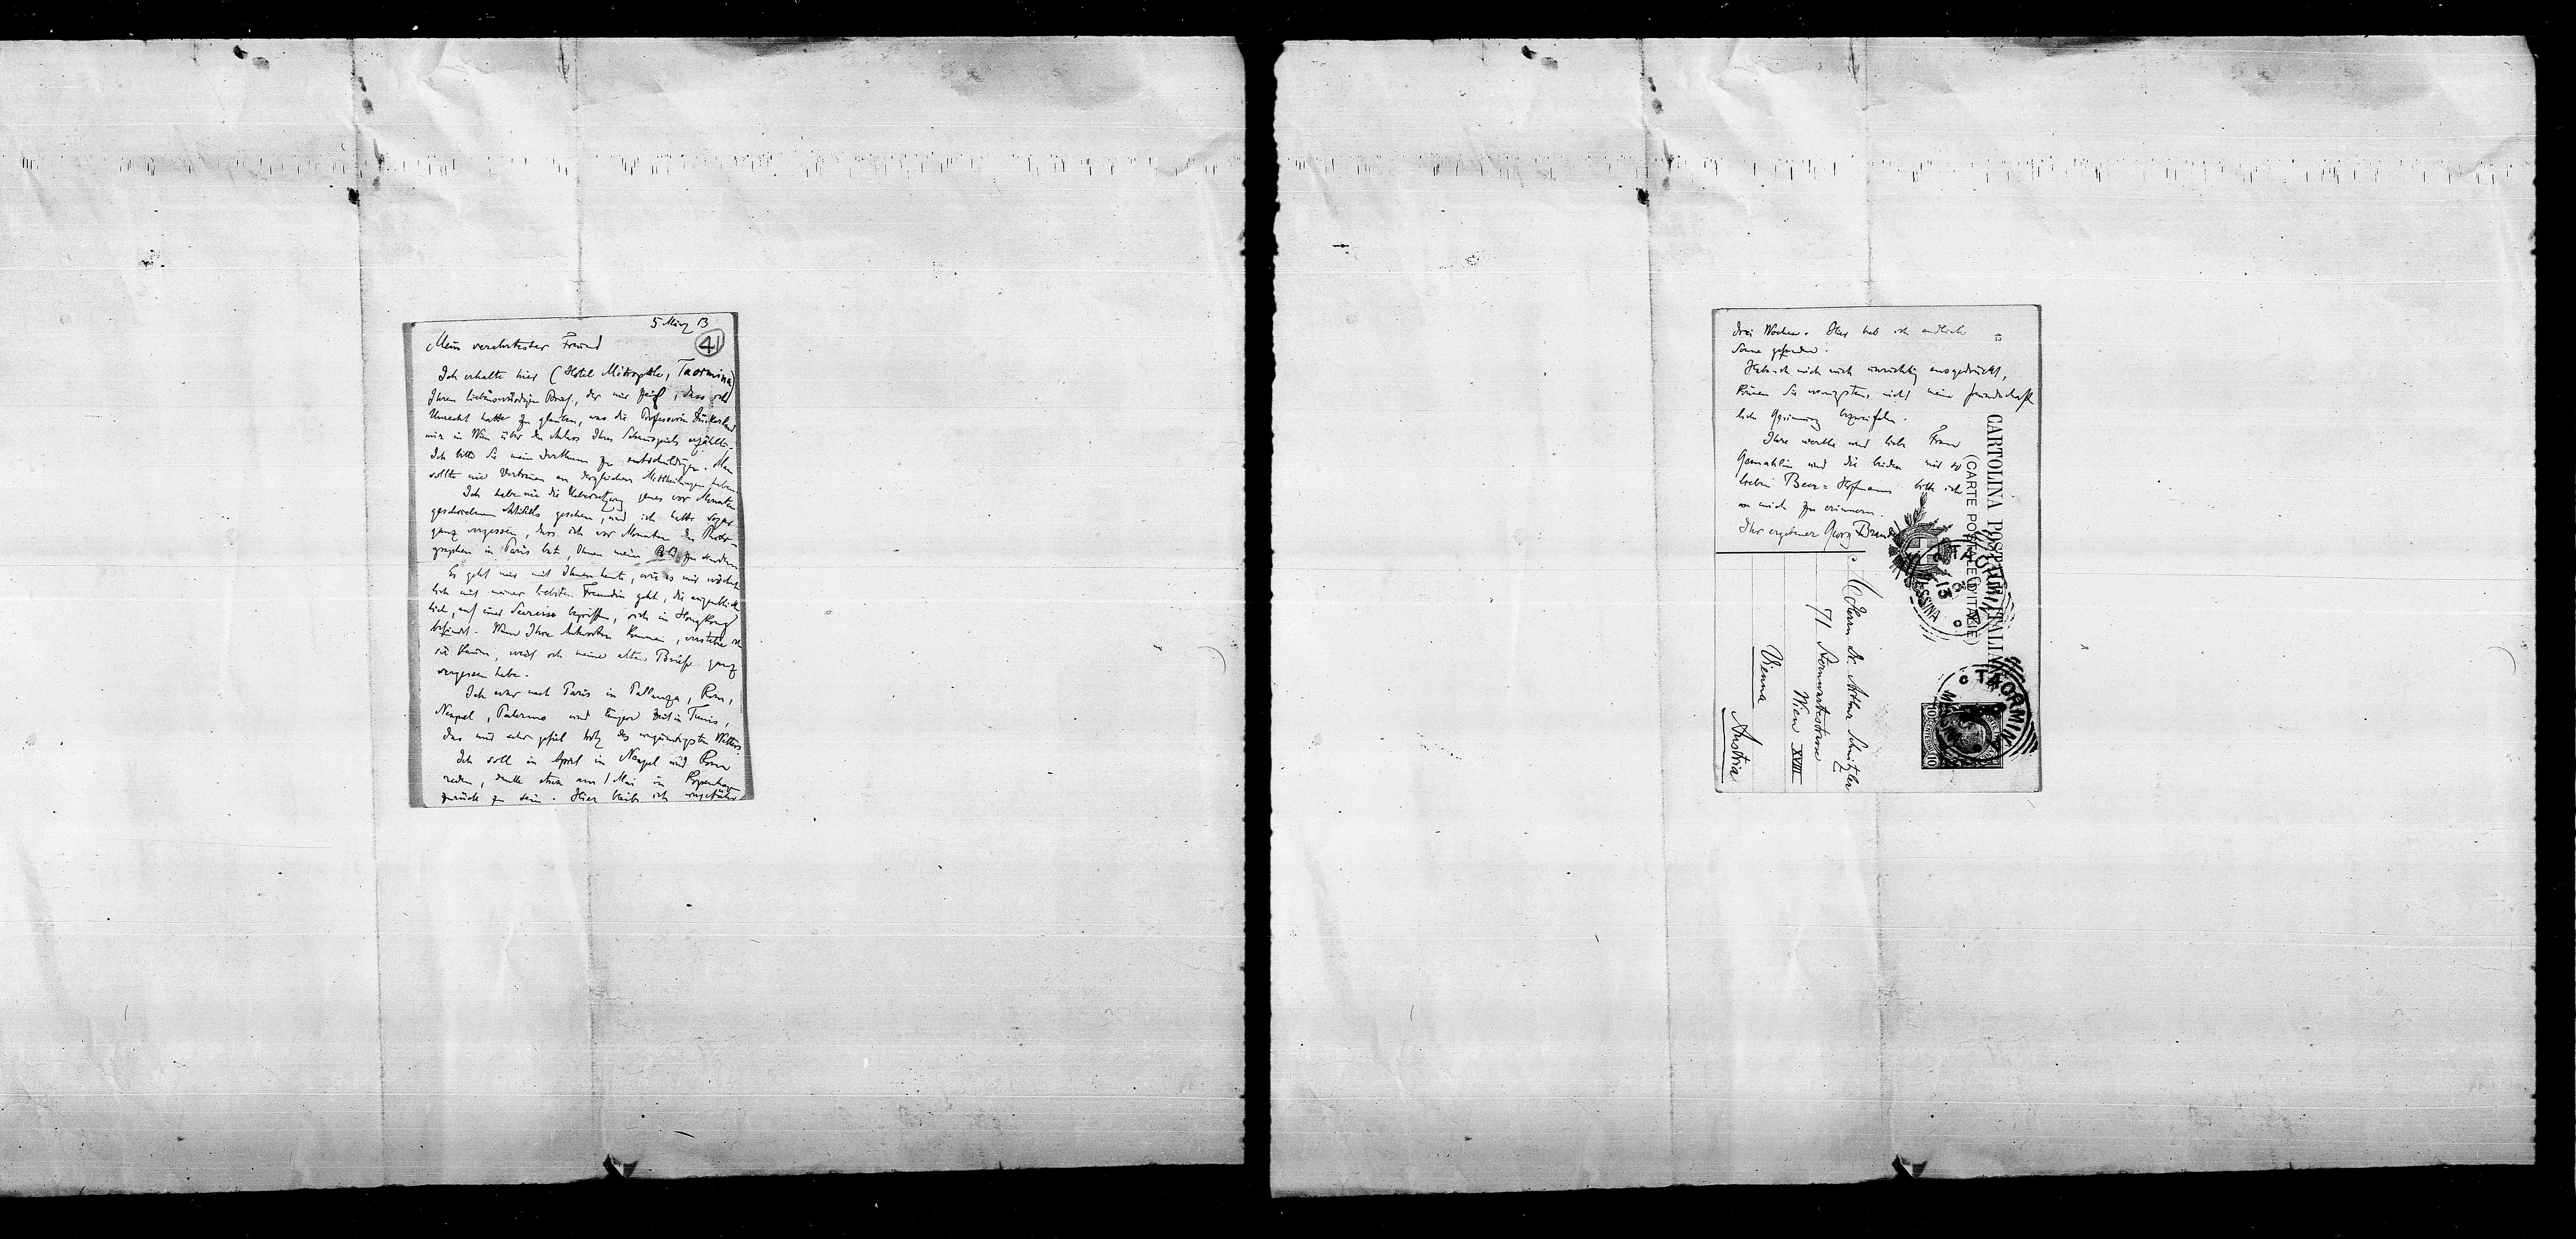 5 März 13
41
Mein verehrtester Freund
Ich erhalte hier (Hotel Métropole, Taormina)
Ihren liebenswürdigen Brief, der mir zeigt, dass ich
Unrecht hatte zu glauben, was die Professorin
mir in Wien über den Anlass Ihres Schauspiels erzählte.
Ich bitte Sie mein Irrthum zu entschuldigen. Man
sollte nie Vertrauen an dergleichen Mittheilungen haben
Ich habe nie die Uebersetzung jenes vor Monaten
geschriebenen Artikels gesehen, und ich hatte sogar
ganz vergessen, dass ich vor Monaten den Photo-
graphen in Paris bat, Ihnen mein Bild zu senden
Es geht mir mit Ihnen heute, wie es mir wöchent
lich mit meiner liebsten Freundin geht, die augenblick
lich, auf einer Seereise begriffen, sich in HongKong
befindet. Wenn Ihre Antworten kommen, verstehe ich
sie kaum, weil ich meine alten Briefe ganz
vergessen habe.
Ich war nach Paris in Pallanza, Rom,
Neapel, Palermo und längere Zeit in Tunis,
das mir sehr gefiel trotz des ungünstigsten Wetters.
Ich soll in April in Neapel und Rom
reden, denke etwa am 1 Mai in Kopenhagen
zurück zu sein. Hier bleibe ich ungefähr
drei Wochen. Hier hab ich endlich
Sonne gefunden.
Hab ich mich auch unrichtig ausgedrückt,
können Sie wenigstens nicht meine freundschaft
liche Gesinnung bezweifeln.
Ihre werthe und liebe Frau
Gemahlin und die beiden mir so
lieben Beer-Hofmanns bitte ich
an mich zu erinnern.
Ihr ergebener Georg Brandes
CARTOLINA POSTALE ITALIANA
(CARTE POSTALE D'ITALIE)
TAORMINA
13
MESSINA
TAORMINA
MESSINA
10 10
Herrn Dr. Arthur Schnitzler
71 Sternwartestrasse
Wien XVIII
Vienna
Austria